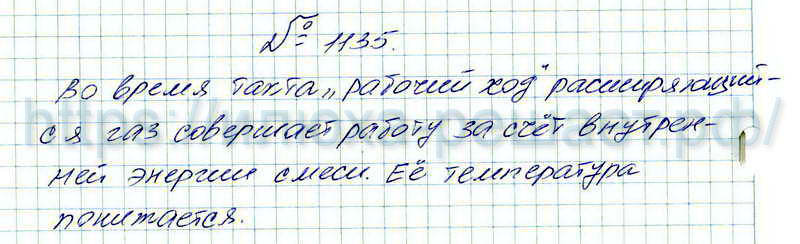 № 1135.
Во время такта „рабочий ход" расширяющий-
ся газ совершает работу за счёт внутрен-
ней энергии смеси. Её температура
понижается.